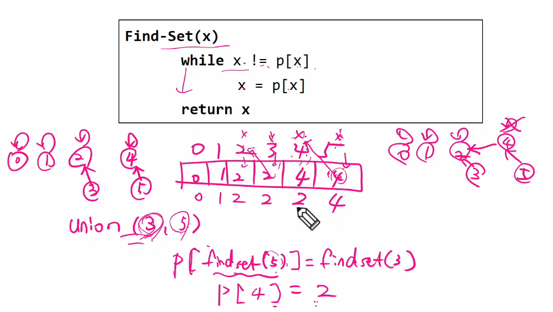 Find-Set(x)
while x != p[x]
x = p[x]
return x
0 1 2 3 4 5
0 1 2 4
3 5
0 1 2 2 4 4
0 1 2 2 2 4
0 1 2 4
3 5
union (3, 5)
p[findset(5)] = findset(3)
p[4] = 2